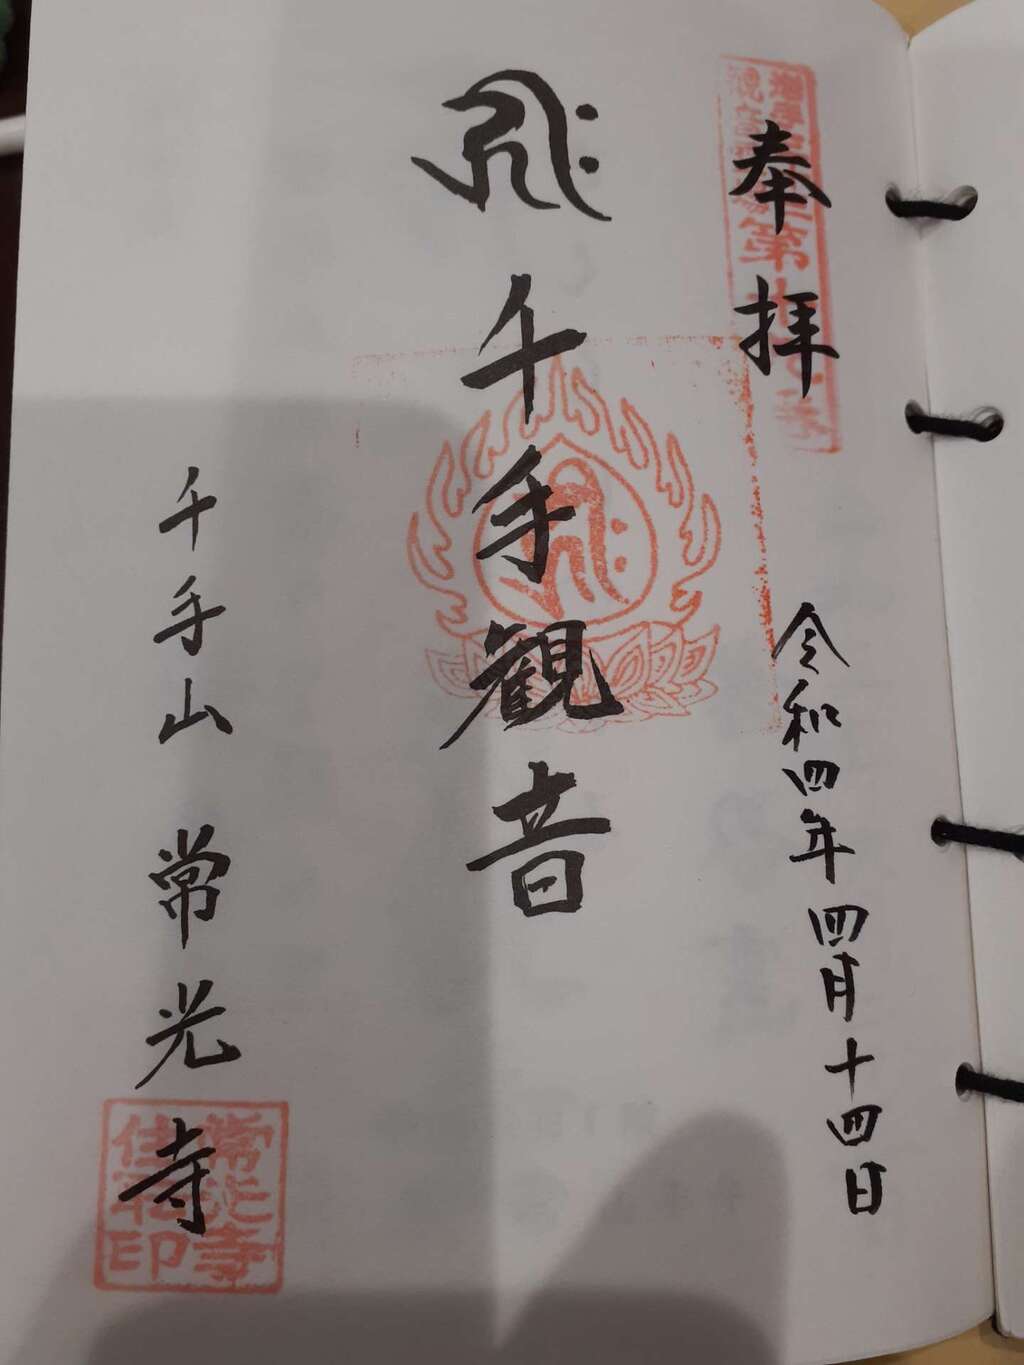 奉拝
令和四年四月十四日
千手観音
千手山 常光寺
常光寺
住職印